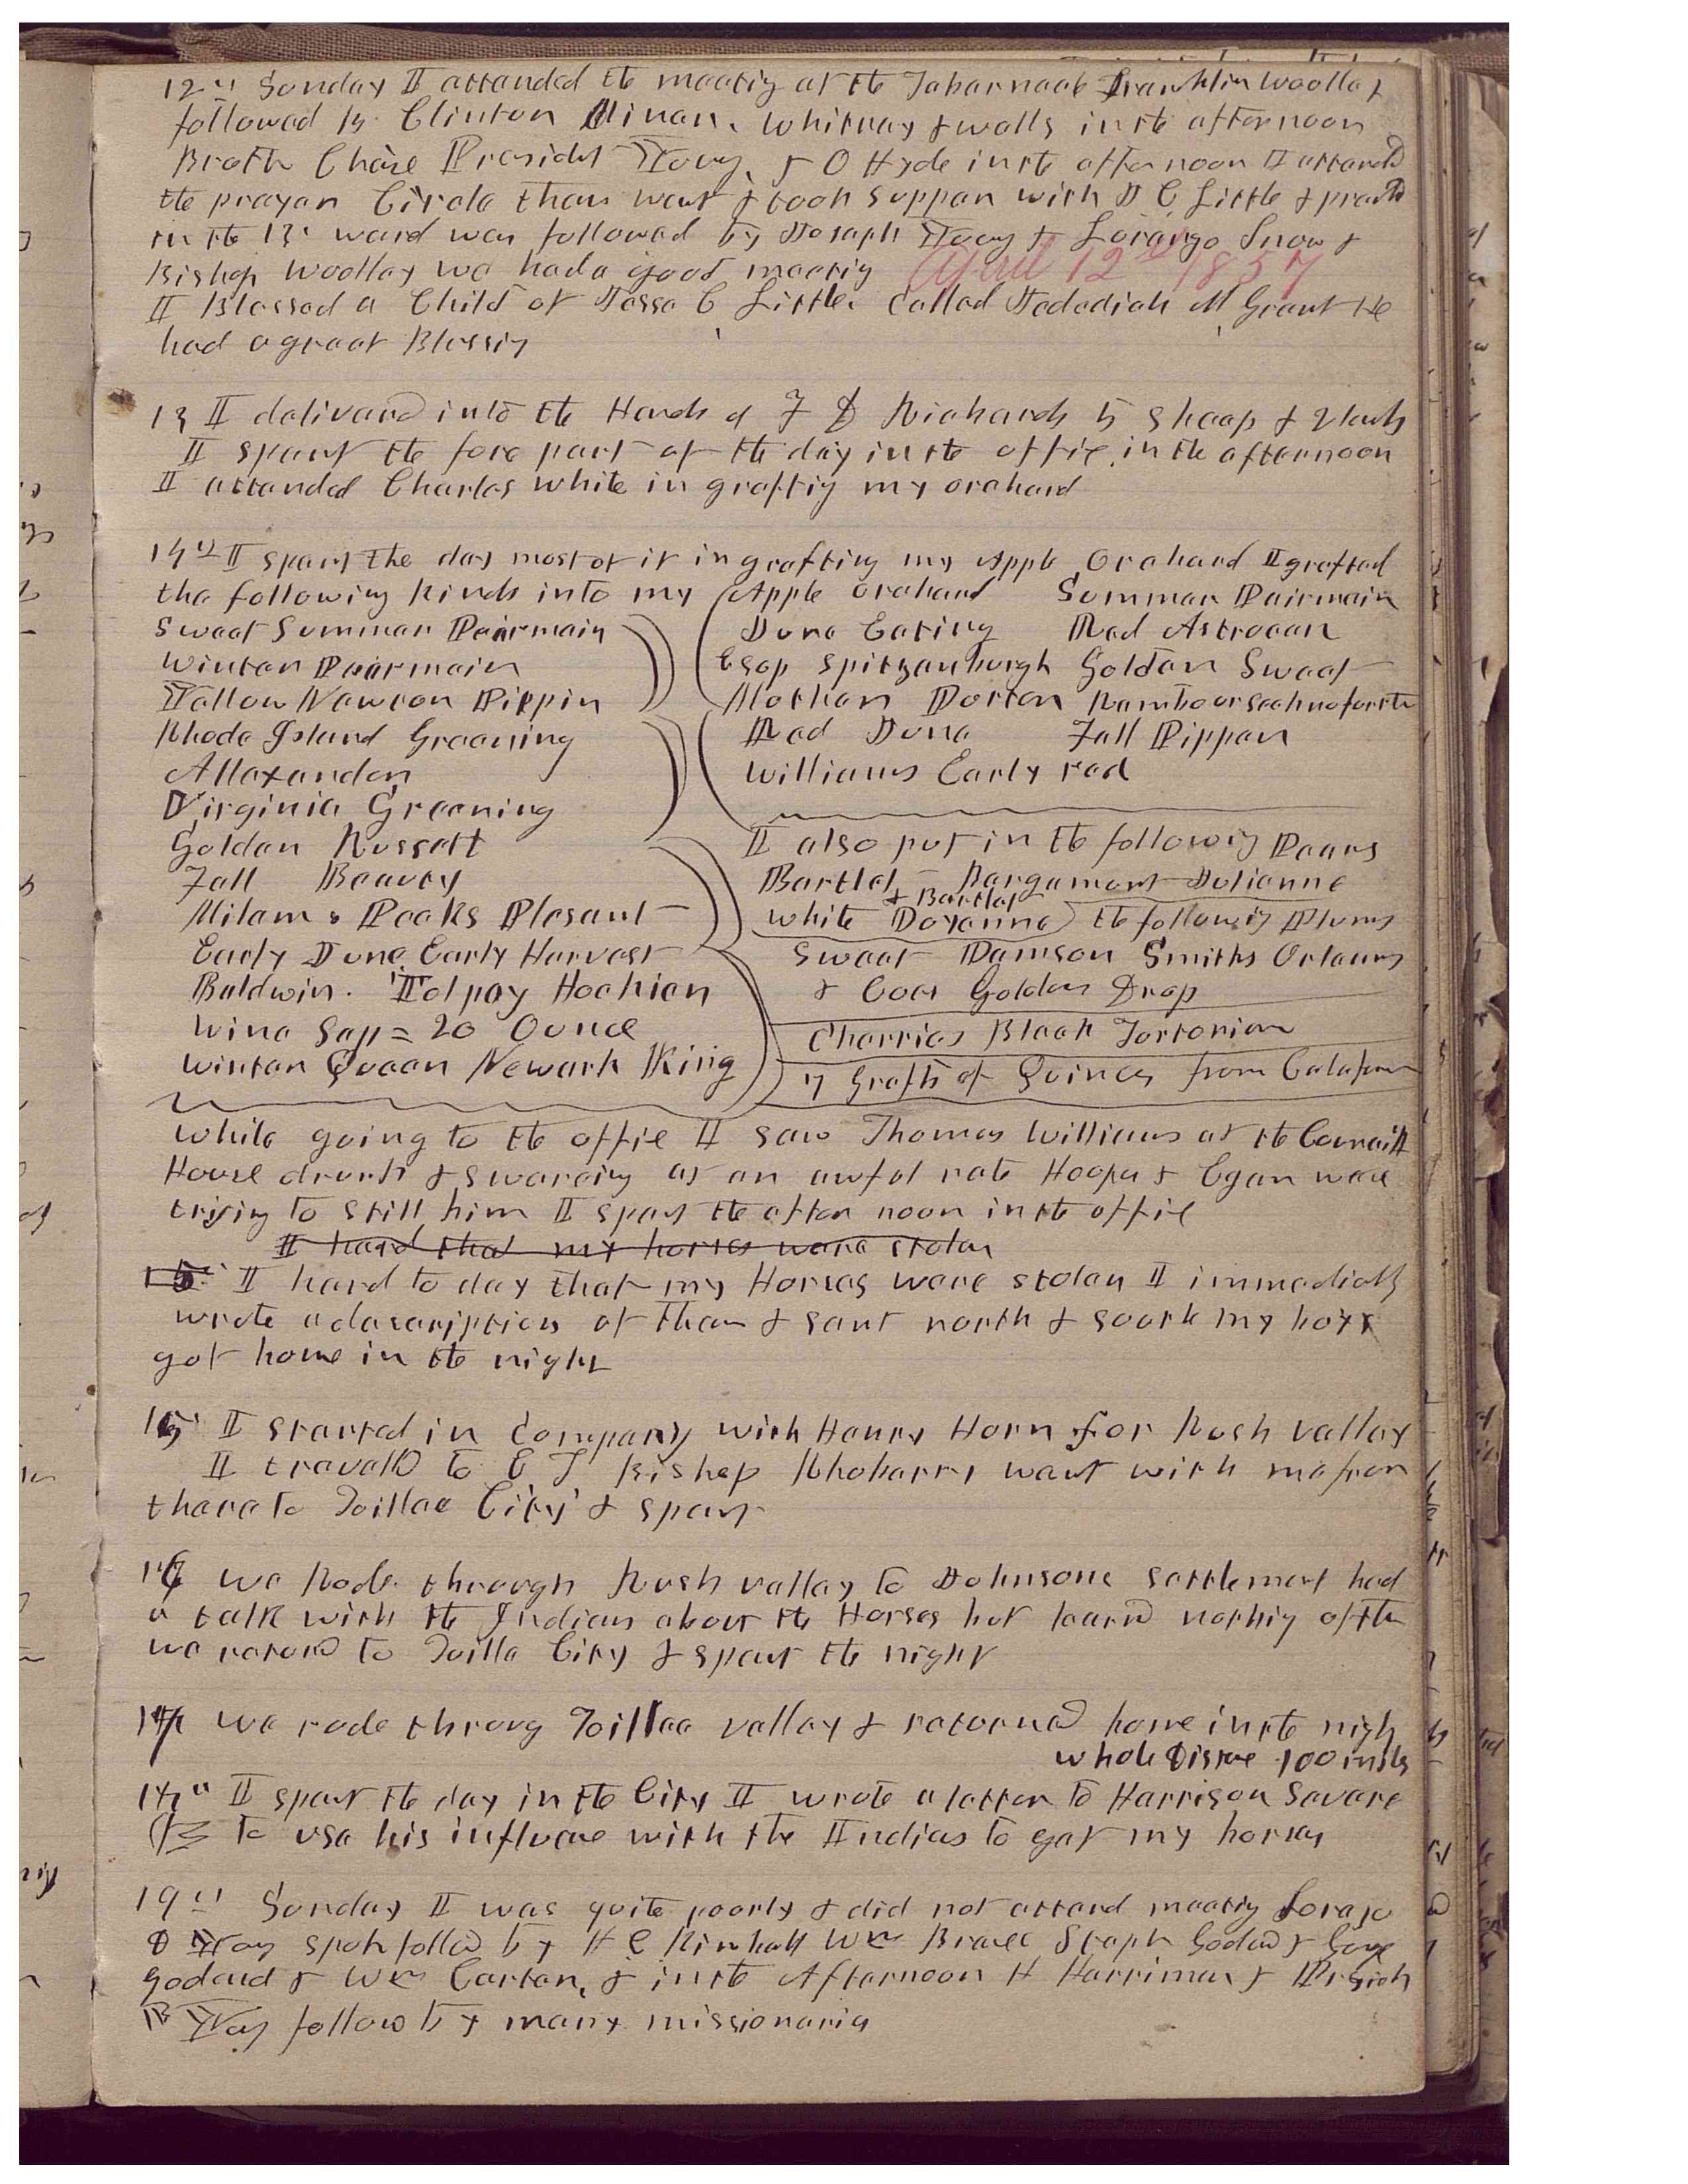 12th Sunday I attended the meeting at the Tabernacle Franklin Woolley
followed by Clinton Minan, Whitney & wells in the afternoon
Broth Chase Presidet Young, & O Hyde in the afternoon I attended
the prayer Circle then went & took supper with J C Little & preachd
in the 13 ward was followed by Joseph Young & Lorenzo Snow &
Bishop Woolley we had a good meetig April 12th 1857
I Blessed a Child of Jesse C Little. Called Jedediah M Grant He
had a great Blessig
13 I deliverd into the Hands of F D Richards 5 sheep & 2 lambs
I spent the fore part of the day in the offie. in the afternoon
I attended Charles white in graftig my orchard
14th I spent the day most of it in grafting my Apple Orchard I grafted
the following kinds into my Apple orchard Summer Pairmain
Sweet Summer Pairmain June Eating Red Astrocan
Winter Pairmain Esop Spitzenburgh Golden Sweet
Yellow Newton Pippin Mother Porter
Rhode Island Greening Red June Fall Pippen
Allexander Williams Early red
Virginia Greening
Golden Russett I also put in the followig Pears
Fall Beauty Bartlet - Bargamont Julianne
Milam & Pecks Plesant - White Doyenne & Bartlet the followig Plums
Early June Early Harvest Sweet Damson Smiths Orleans
Baldwin. Tolpoy Hockien & Coes Golden Drop
Wine Sap = 20 Ounce Cherries Black Tortorian
Winter Queen Newark King 17 Grafts of Quinces from
while going to the offie I saw Thomas Williams at the
House drunk & swareing at an awful rate Hooper & Egan were
trying to still him I spent the after noon in the offie
I hard that my horses were stolen
15 I hard to day that my Horses were stolen I immediatly
wrote a descriptien of them & sent north & South my boys
got home in the night
15 I started in Company with Henry Horn for Rush valley
I travelld to E T Bishop Rhoberrys went with me from
there to Toillee City & spent
16 we Rode through Rush valley to Johnsons settlement had
a talk with the Indians about the Horses but learnd nothig of th
we returnd to Toille City & spent the night
17 we rode throug Toillee valley & returned home in the nigh
whole Distance 100 mils
18th I spent the day in the City I wrote a letter to Harrison Severe
to use his influence with the Indias to get my horses
19th Sunday I was quite poorly & did not attend meetig Lorenzo
D Young spok followd by H C Kimball Wm Brace Steph Godard & Gorge
Godard & Wm Carter, & in the Afternoon H Harriman & Presidt
B Young follow by many missionaries